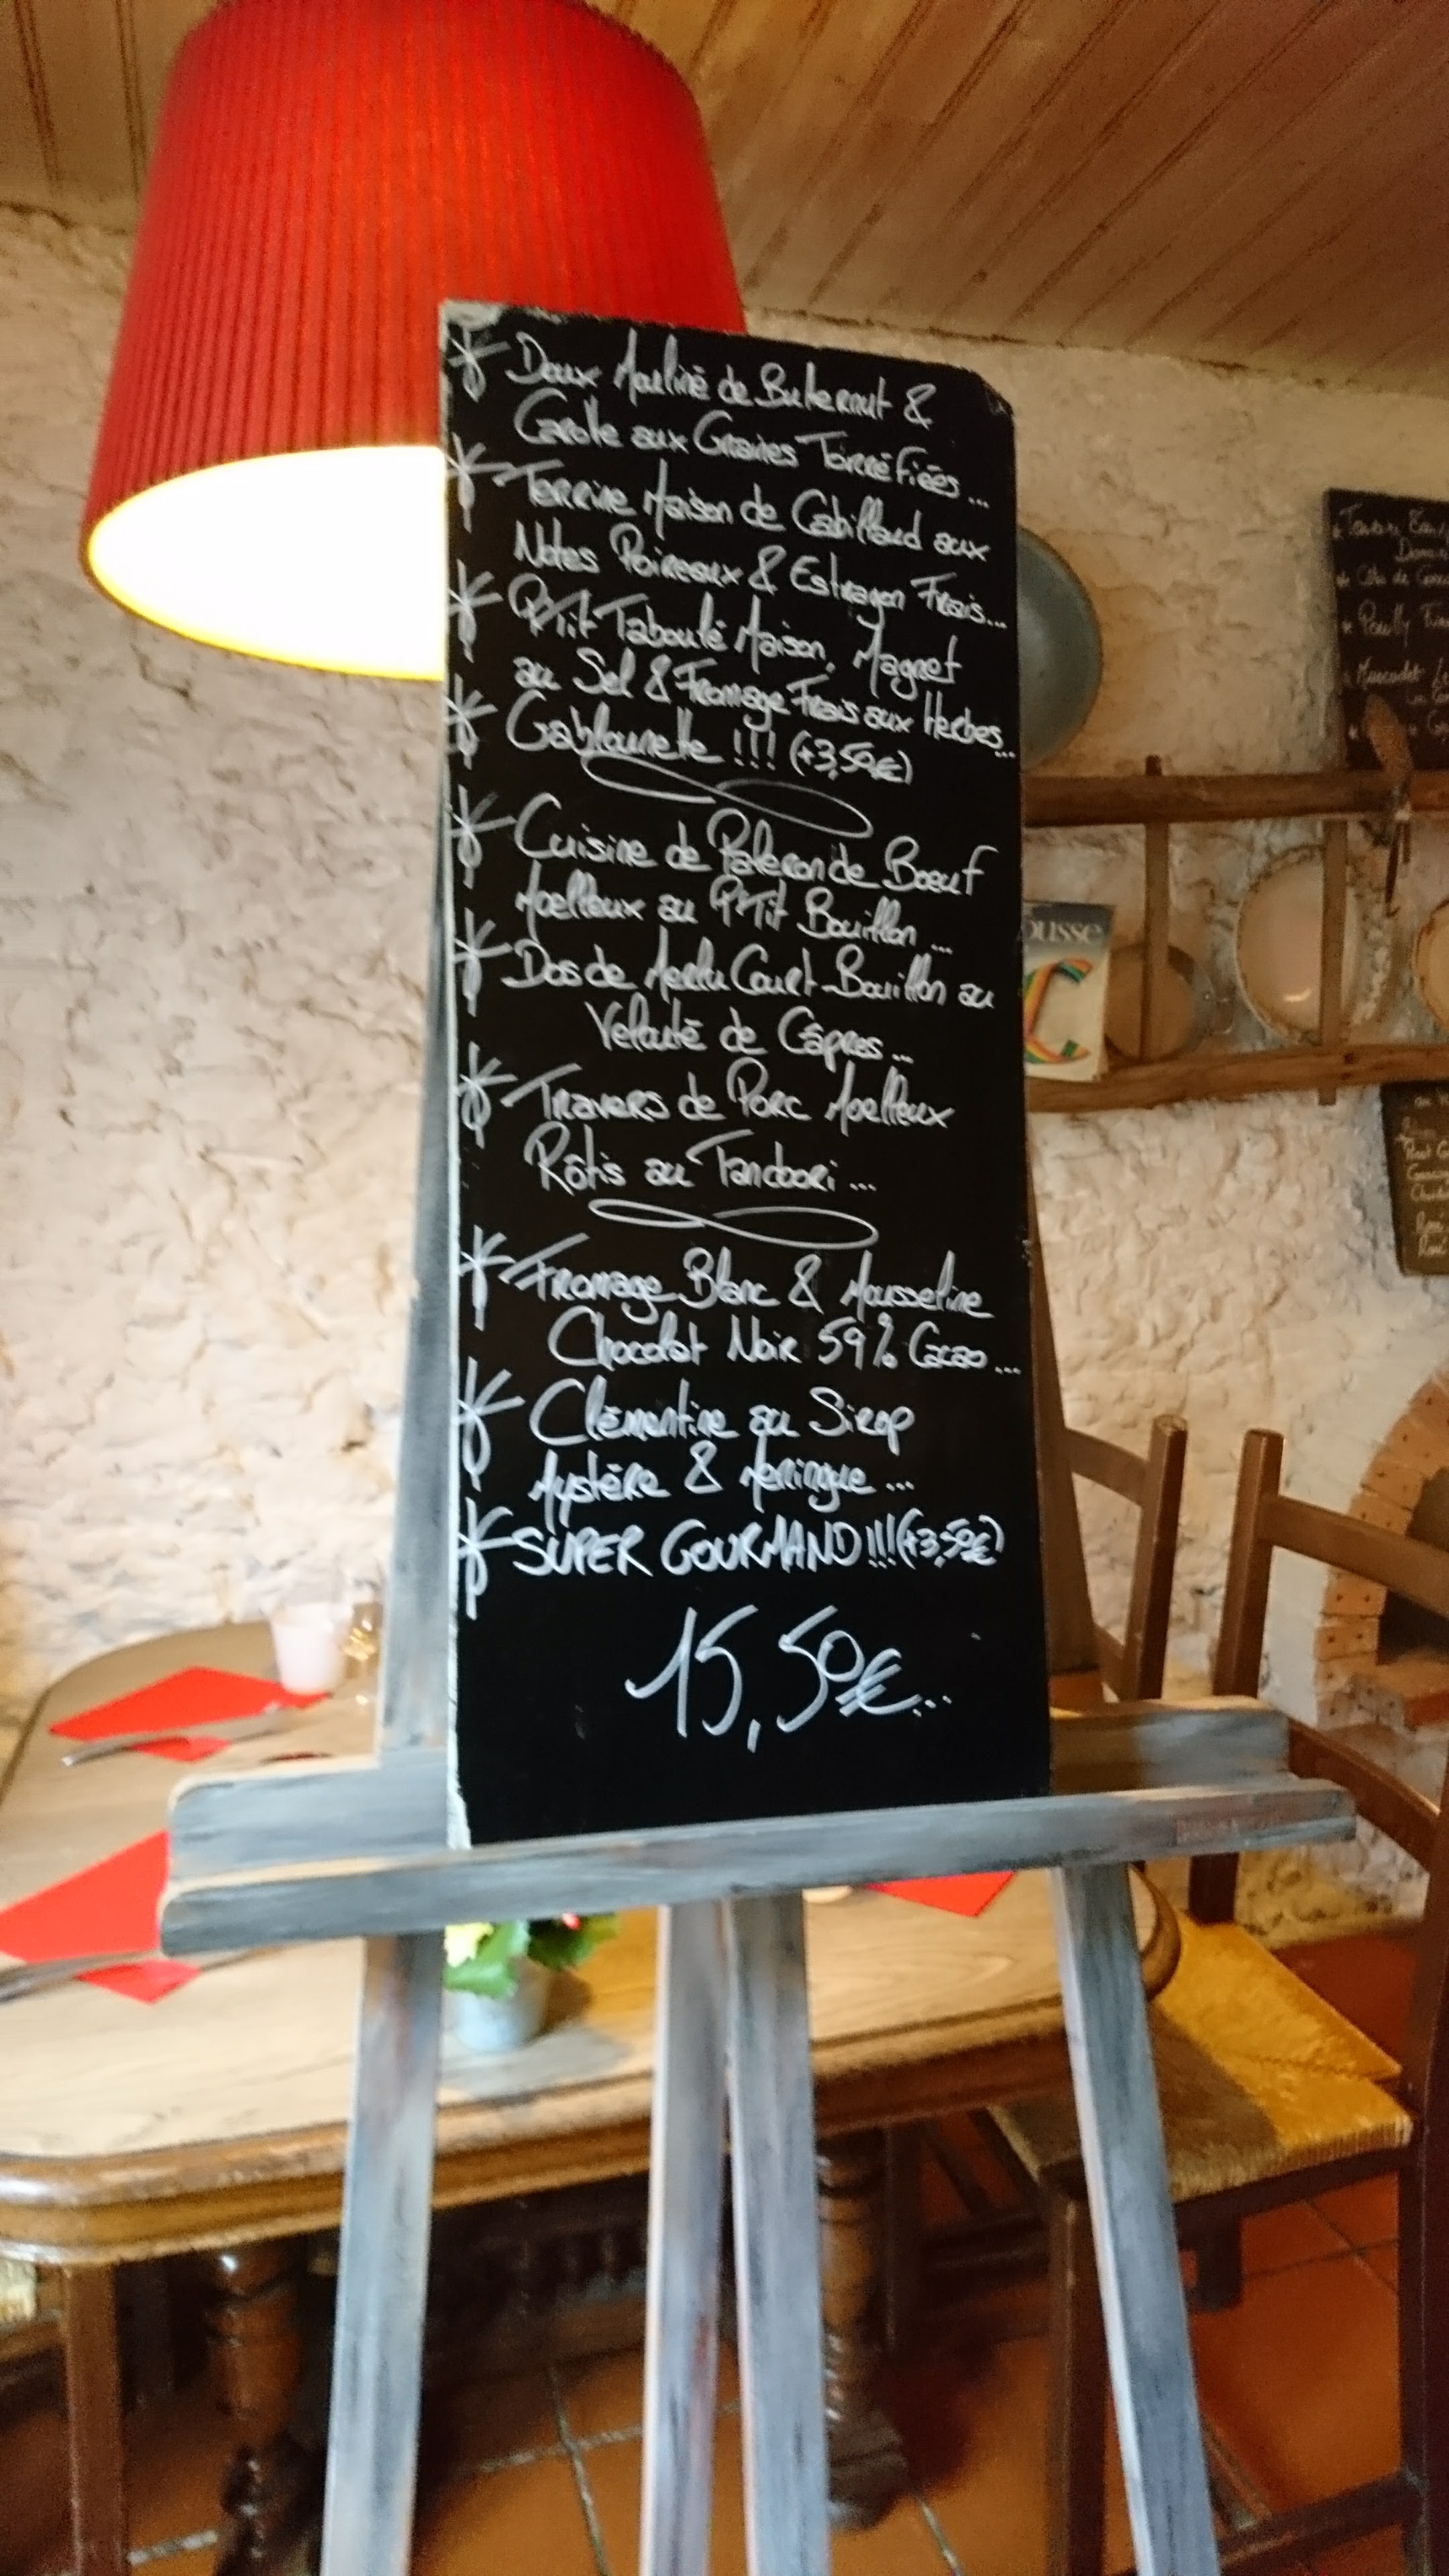 Doux Mouliné de Buternut &
Carotte aux Graines Torréfiées...
Terrine Maison de Cabillaud aux
Notes Poireaux & Estragon Frais...
P'Tit Taboulé Maison, Magret
au Sel & Fromage Frais aux Herbes...
Gablounette !!! (+3,50€)
Cuisine de Paleron de Boeuf
Moelleux au P'Tit Bouillon...
Dos de Merlu Court-Bouillon au
Velouté de Câpres...
Travers de Porc Moelleux
Rôtis au Tandoori...
Fromage Blanc & Mousseline
Chocolat Noir 59% Cacao...
Clémentine au Sirop
Mystère & Meringue...
SUPER GOURMAND!!! (+3,50€)
15,50€...
ousse
C
Pouilly
Muscadet